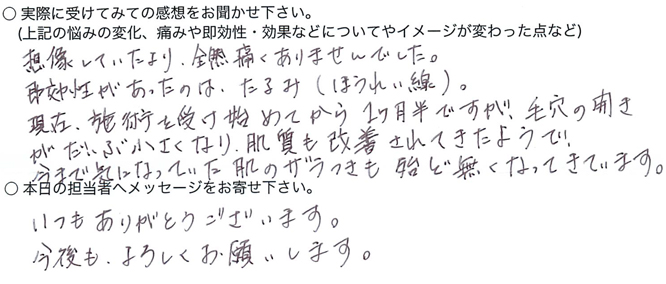 ○ 実際に受けてみての感想をお聞かせ下さい。
(上記の悩みの変化、痛みや即効性・効果などについてやイメージが変わった点など)
想像していたより、全然痛くありませんでした。
即効性があったのは、たるみ(ほうれい線)。
現在、施術を受け始めてから1ヶ月半ですが、毛穴の開き
がだいぶ小さくなり、肌質も改善されてきたようで、
今まで気になっていた肌のザラつきも殆ど無くなってきています。
○ 本日の担当者へメッセージをお寄せ下さい。
いつもありがとうございます。
今後も、よろしくお願いします。